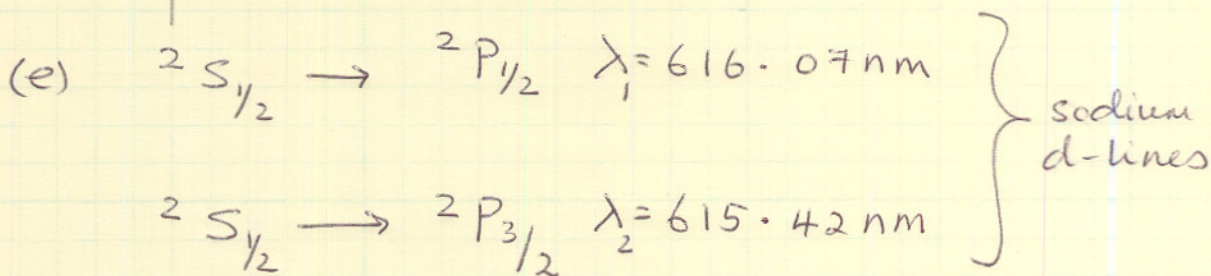 (e) ²S₁/₂ → ²P₁/₂ λ₁ = 616.07nm
²S₁/₂ → ²P₃/₂ λ₂ = 615.42nm
sodium
d-lines